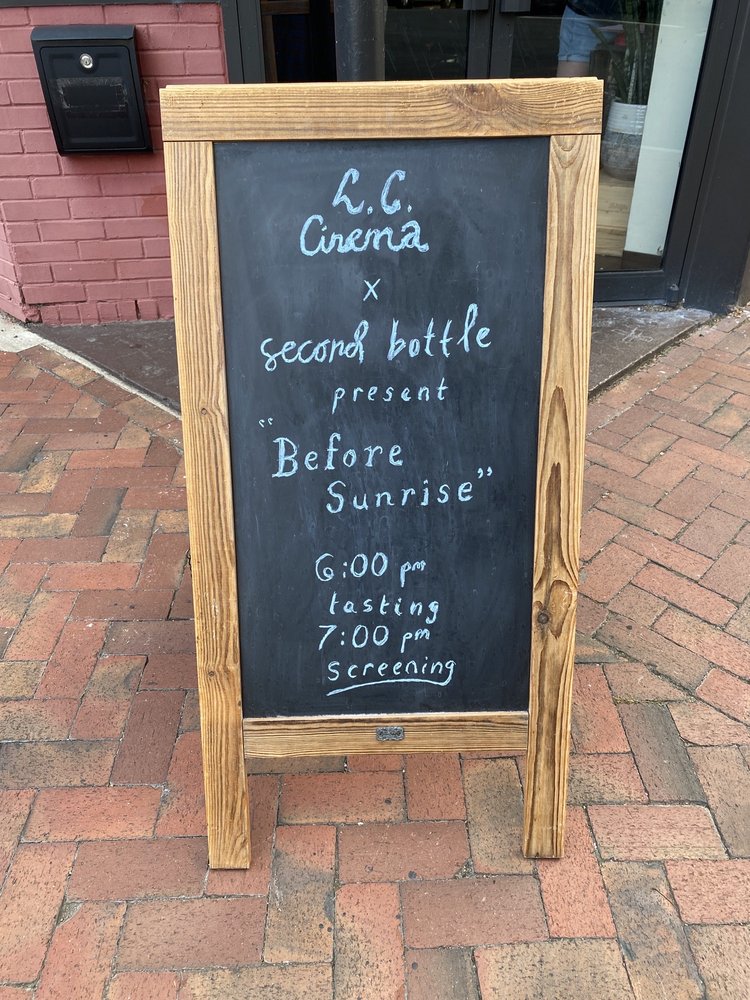 L.C.
Cinema
x
second bottle
present
"Before
Sunrise"
6:00 pm
tasting
7:00 pm
screening